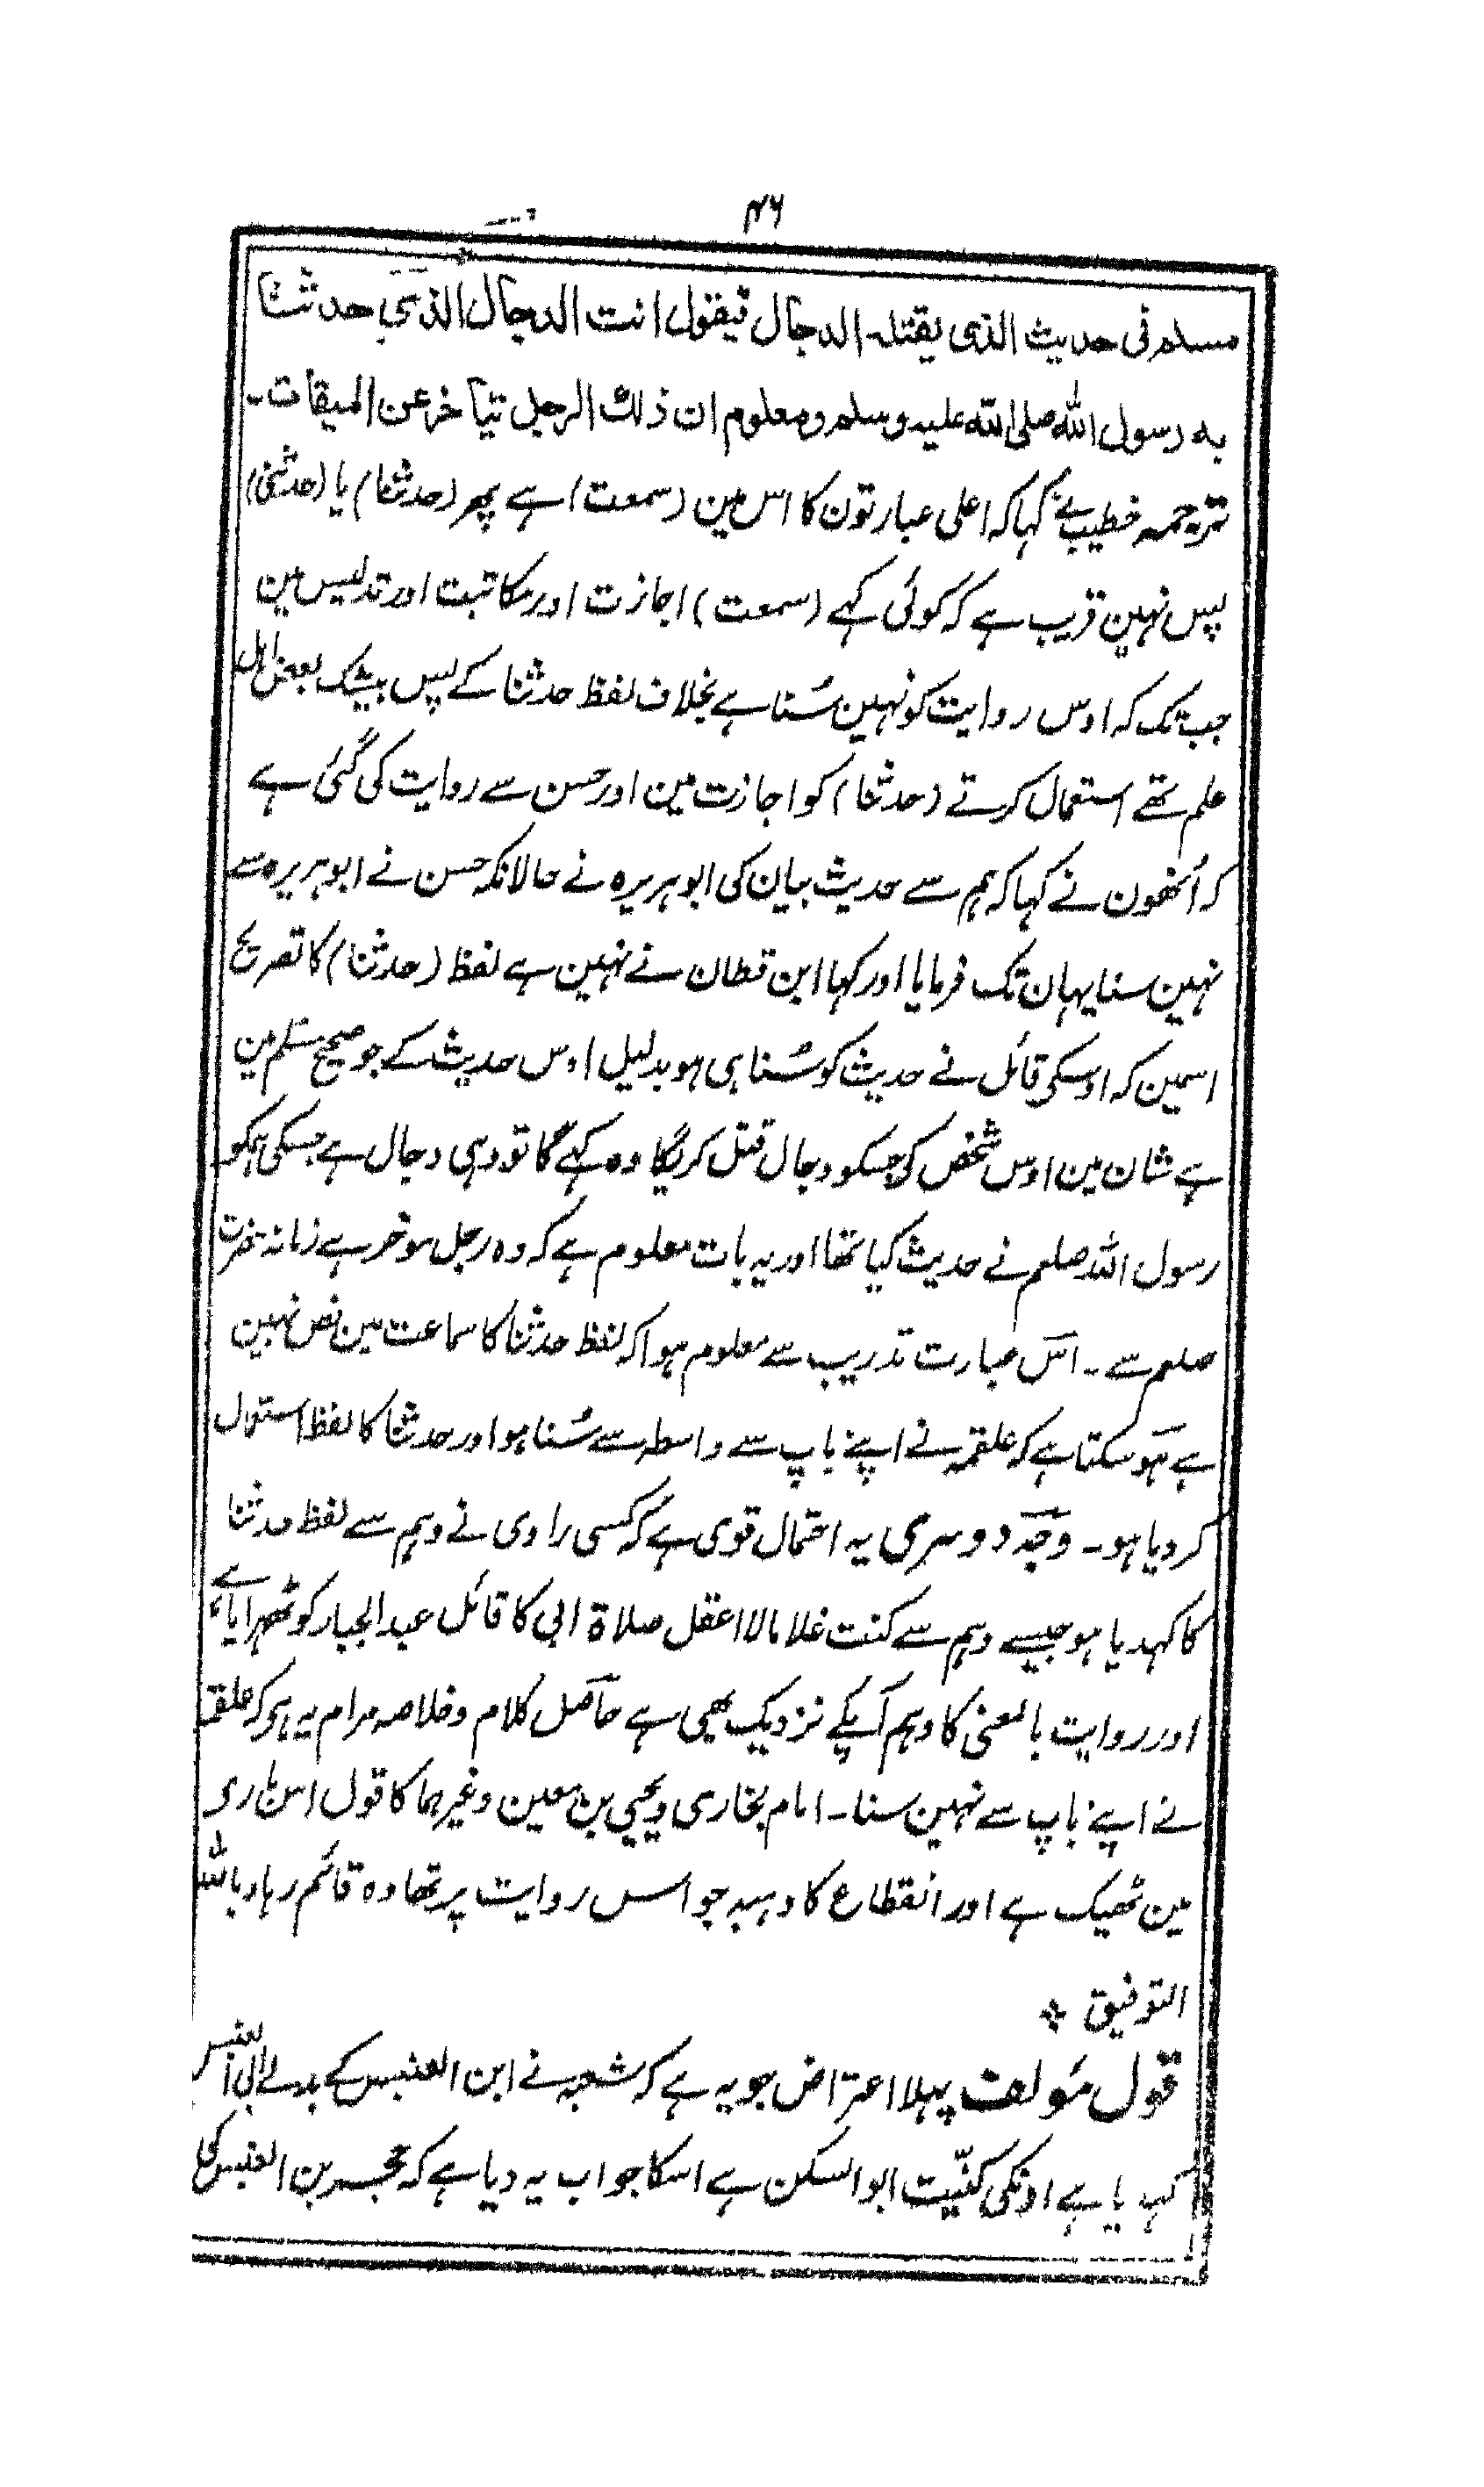 ۴۶
مسلم فی حدیث الذی یقتلہ الدجال فیقول انت الدجال الذی حدثنا
بہ رسول اللہ صلی اللہ علیہ وسلم ومعلوم ان ذلک الرجل یتاخر عن المیقات۔
ترجمہ خطیب نے کہا کہ اعلی عبارتون کا اس مین (سمعت) ہے پھر (حدثنا) یا (حدثنی)
پس نہین قریب ہے کہ کوئی کہے (سمعت) اجازت اور مکاتبت اور تدلیس مین
جب تک کہ اوس روایت کو نہین سُنا ہے بخلاف لفظ حدثنا کے پس بیشک بعض اہل
علم تھے استعمال کرتے (حدثنا) کو اجازت مین اور حسن سے روایت کی گئی ہے
کہ اُنھون نے کہا کہ ہم سے حدیث بیان کی ابوہریرہ نے حالانکہ حسن نے ابوہریرہ سے
نہین سنا یہان تک فرمایا اور کہا ابن قطان نے نہین ہے لفظ (حدثنا) کا تصریح
اسمین کہ اوسکی قائل نے حدیث کو سُنا ہی ہو بدلیل اوس حدیث کے جو صحیح مسلم مین
ہے شان مین اوس شخص کی جسکو دجال قتل کریگا وہ کہے گا تو وہی دجال ہے جسکی ہمکو
رسول اللہ صلعم نے حدیث کیا تھا اور یہ بات معلوم ہے کہ وہ رجل موخر ہے زمانہ حضرت
صلعم سے۔ اس عبارت تدریب سے معلوم ہوا کہ لفظ حدثنا کا سماعت مین نص نہین
ہے ہو سکتا ہے کہ علقمہ نے اپنے باپ سے واسطہ سے سُنا ہو اور حدثنا کا لفظ استعمال
کر دیا ہو۔ وجہ دوسری یہ احتمال قوی ہے کہ کسی راوی نے وہم سے لفظ حدثنا
کا کہدیا ہو جیسے وہم سے کنت غلاما لا اعقل صلاة ابی کا قائل عبد الجبار کو ٹھہرایا ہے
اور روایت بالمعنی کا وہم آپکے نزدیک بھی ہے حاصل کلام و خلاصہ مرام یہ ہی کہ علقمہ
نے اپنے باپ سے نہین سنا۔ امام بخاری ویحیی بن معین وغیرہما کا قول اس بارے
مین ٹھیک ہے اور انقطاع کا دہبہ جو اس روایت پر تھا وہ قائم رہا وباللہ
التوفیق
قول مؤلف پہلا اعتراض جو یہ ہے کہ شعبہ نے ابن العنبس کے بدلے ابی العنبس
کہدیا ہے اونکی کنیّت ابو السکن ہے اسکا جواب یہ دیا ہے کہ حجر بن العنبس کی